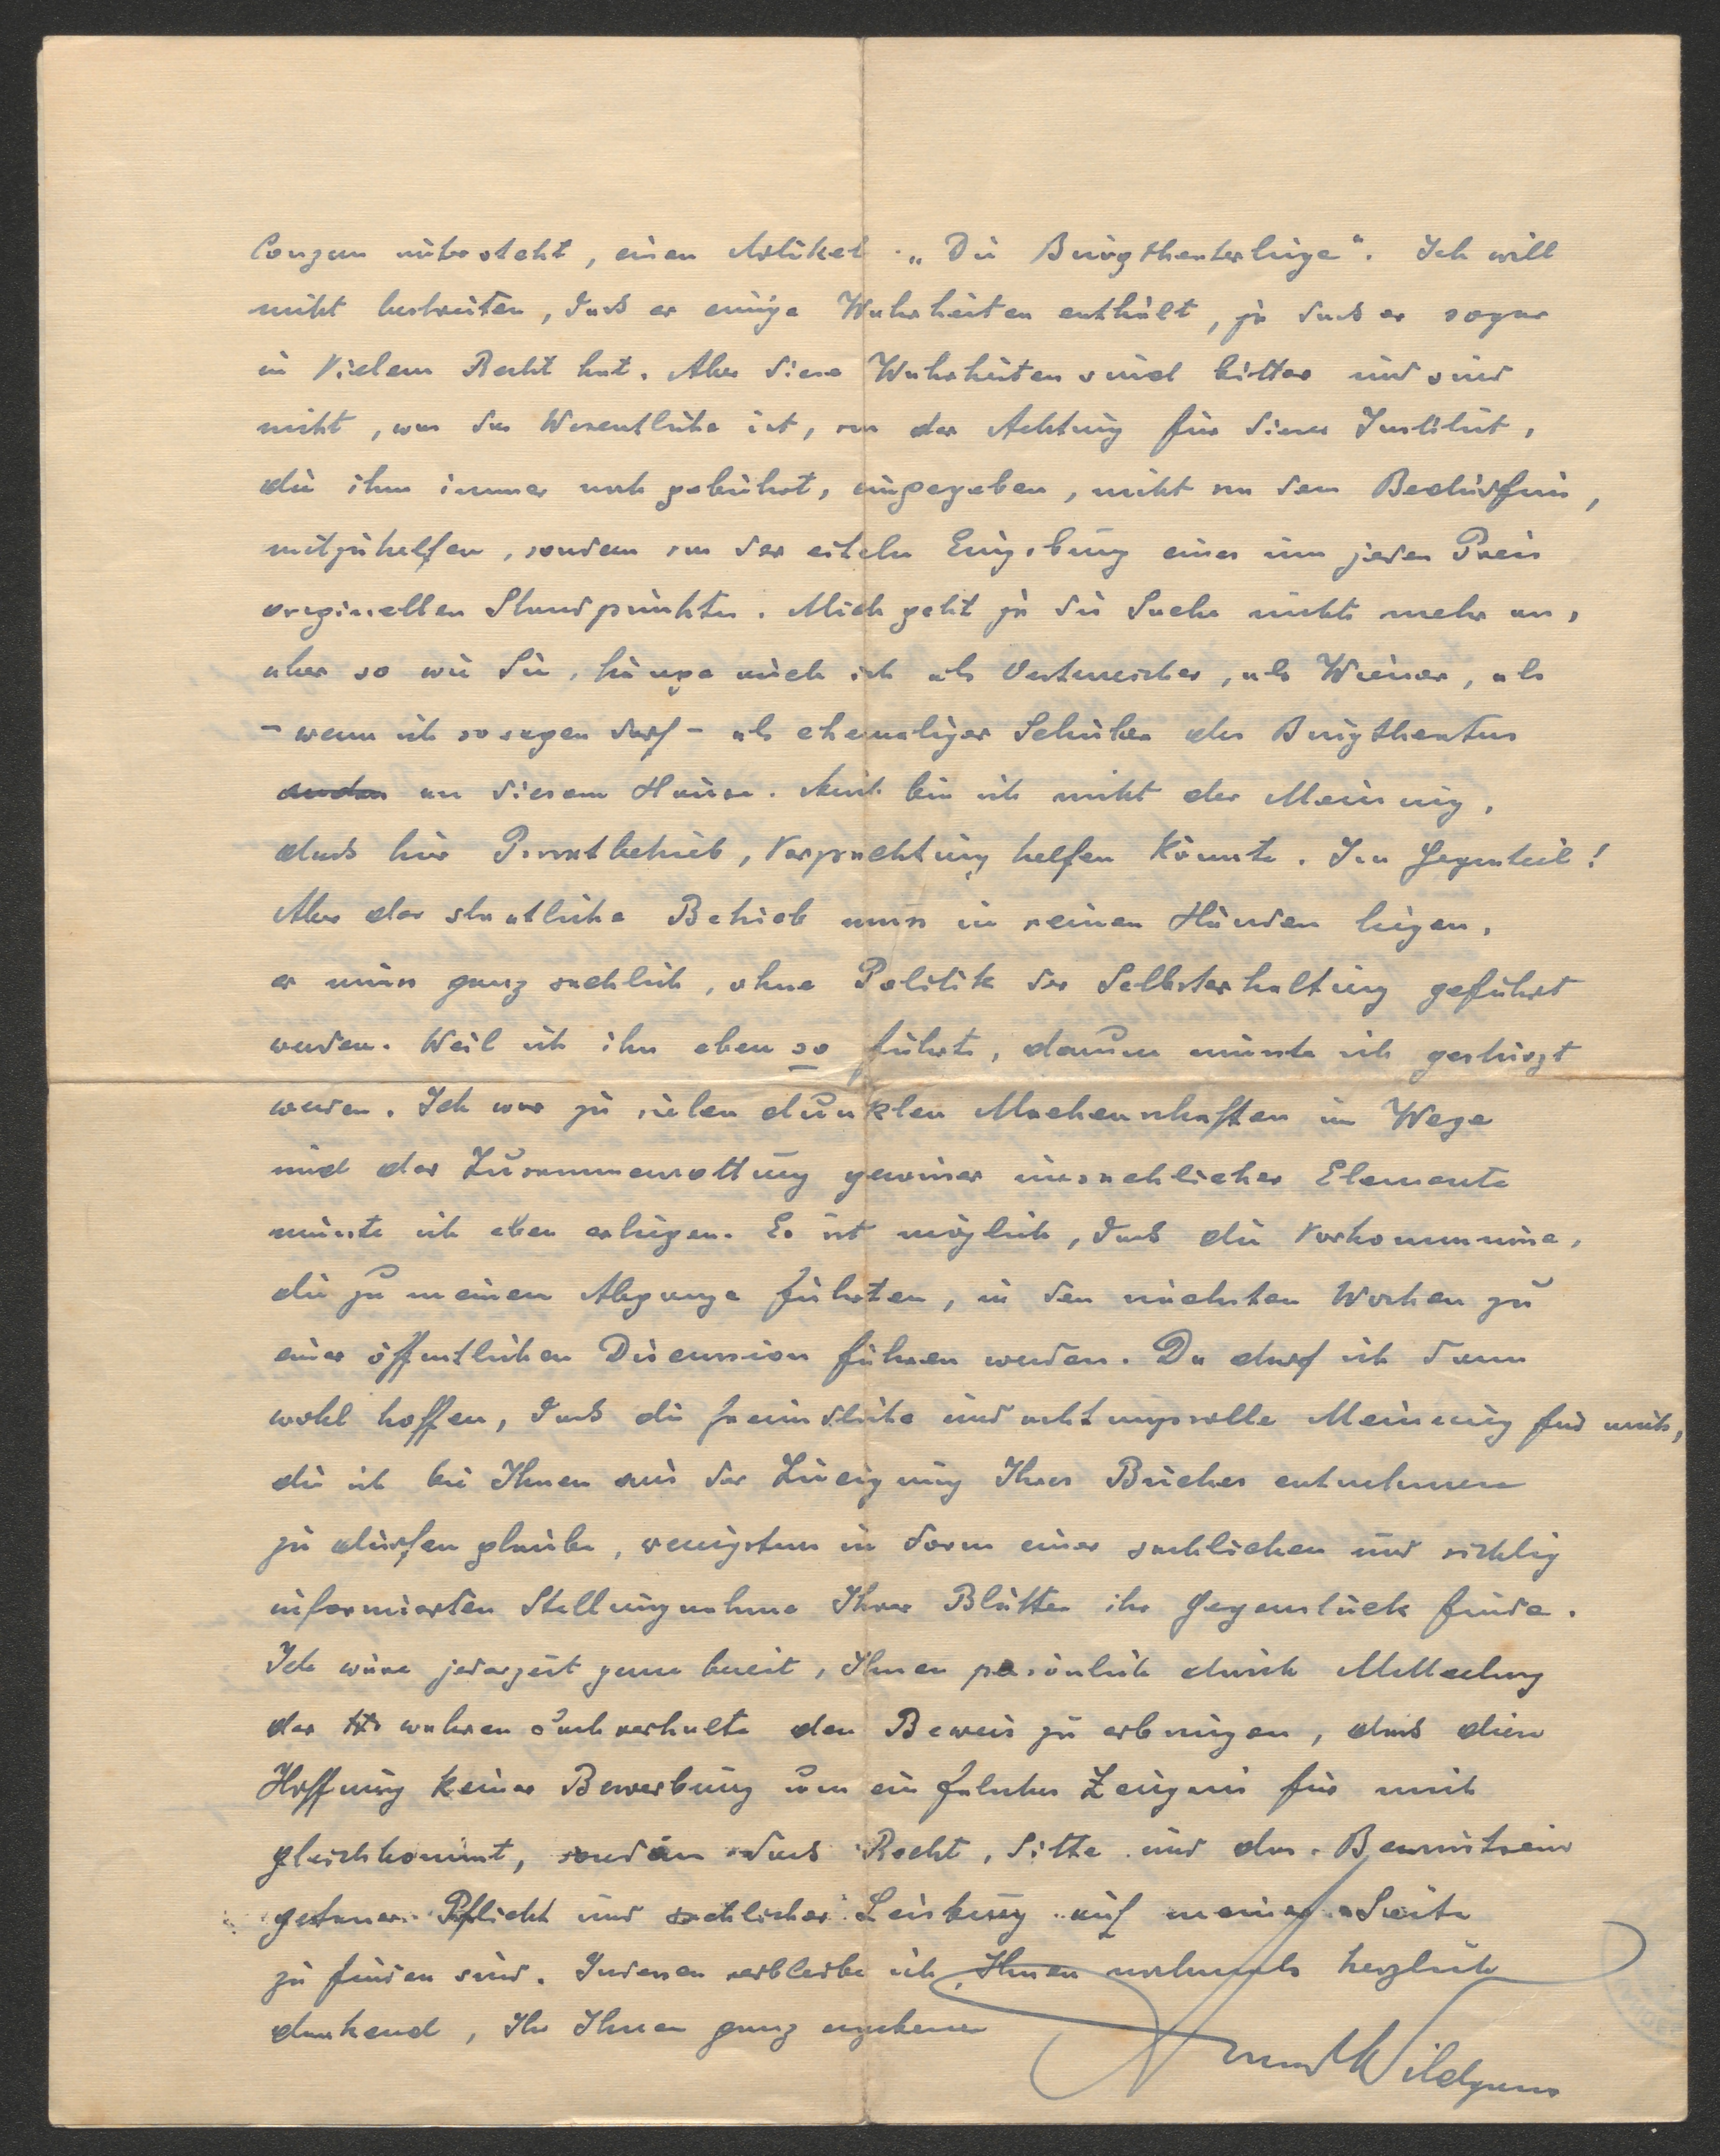 Conzen untersteht, einen Artikel „Die Burgtheaterlüge“. Ich will
nicht bestreiten, dass er einige Wahrheiten enthält, ja dass er sogar
in Vielem Recht hat. Aber diese Wahrheiten sind bitter und sind
nicht, was das Wesentliche ist, von der Achtung für dieses Institut,
die ihm immer noch gebührt, eingegeben, nicht von dem Bedürfnis,
mitzuhelfen, sondern von der eiteln Eingebung eines um jeden Preis
originellen Standpunktes. Mich geht ja die Sache nichts mehr an,
aber so wie Sie, hänge auch ich als Oesterreicher, als Wiener, als
– wenn ich so sagen darf – als ehemaliger Schüler des Burgtheaters
an diesem Hause. Auch bin ich nicht der Meinung,
dass hier Privatbetrieb, Verpachtung helfen könnte. Im Gegenteil!
Aber der staatliche Betrieb muss in reinen Händen liegen,
er muss ganz sachlich, ohne Politik der Selbsterhaltung geführt
werden. Weil ich ihn eben so führte, darum musste ich gestürzt
werden. Ich war zu vielen dunklen Machenschaften im Wege
und der Zusammenrottung gewisser unsachlicher Elemente
musste ich eben erliegen. Es ist möglich, dass die Vorkommnisse,
die zu meinem Abgange führten, in den nächsten Wochen zu
einer öffentlichen Discussion führen werden. Da darf ich dann
wohl hoffen, dass die freundliche und achtungsvolle Meinung für mich,
die ich bei Ihnen aus der Zueignung Ihres Buches entnehmen
zu dürfen glaube, wenigstens in Form einer sachlichen und richtig
informierten Stellungnahme Ihrer Blätter ihr Gegenstück finde.
Ich wäre jederzeit gerne bereit, Ihnen persönlich durch Mitteilung
der wahren Sachverhalte den Beweis zu erbringen, dass diese
Hoffnung keiner Bewerbung um ein falsches Zeugnis für mich
gleichkommt, sondern dass Recht, Sitte und das Bewusstsein
getaner Pflicht und sachlicher Leistung auf meiner Seite
zu finden sind. Indessen verbleibe ich, Ihnen nochmals herzlich
dankend, Ihr Ihnen ganz ergebener
Anton Wildgans